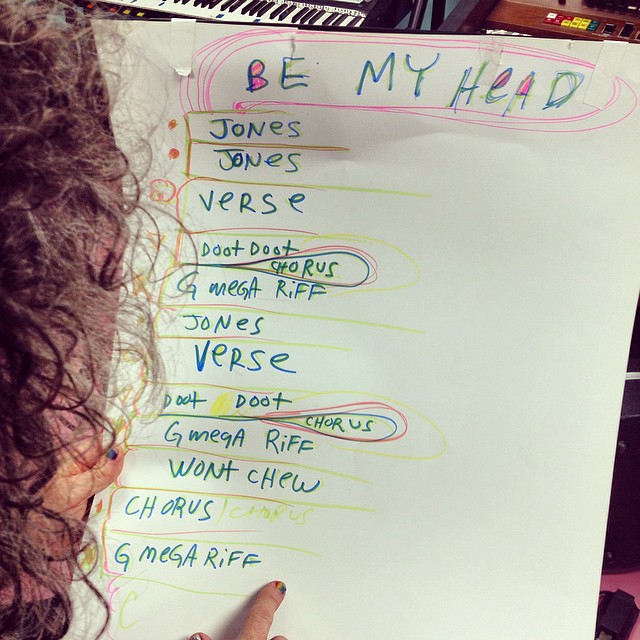 BE MY HEAD
JONES
JONES
VERSE
DOOT DOOT
CHORUS
G MEGA RIFF
JONES
VERSE
DOOT DOOT
CHORUS
G MEGA RIFF
WONT CHEW
CHORUS / CHORUS
G MEGA RIFF
C